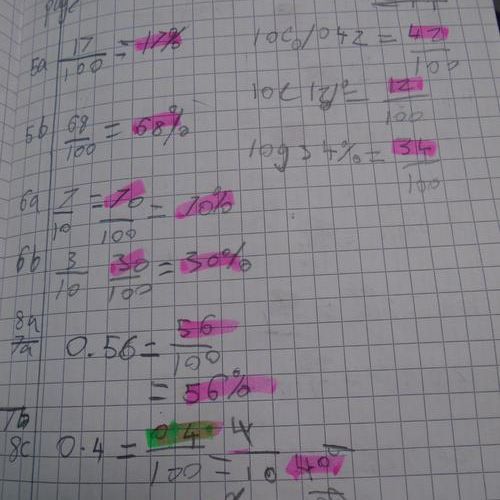 page
5a 17/100 = 17%
5b 68/100 = 68%
6a 7/10 = 70/100 = 70%
6b 3/10 30/100 = 30%
8a
7a 0.56 = 56/100
= 56%
7b
8c 0.4 = 04/100 = 4/10 40
42% = 42/100
12% = 12/100
34% = 34/100